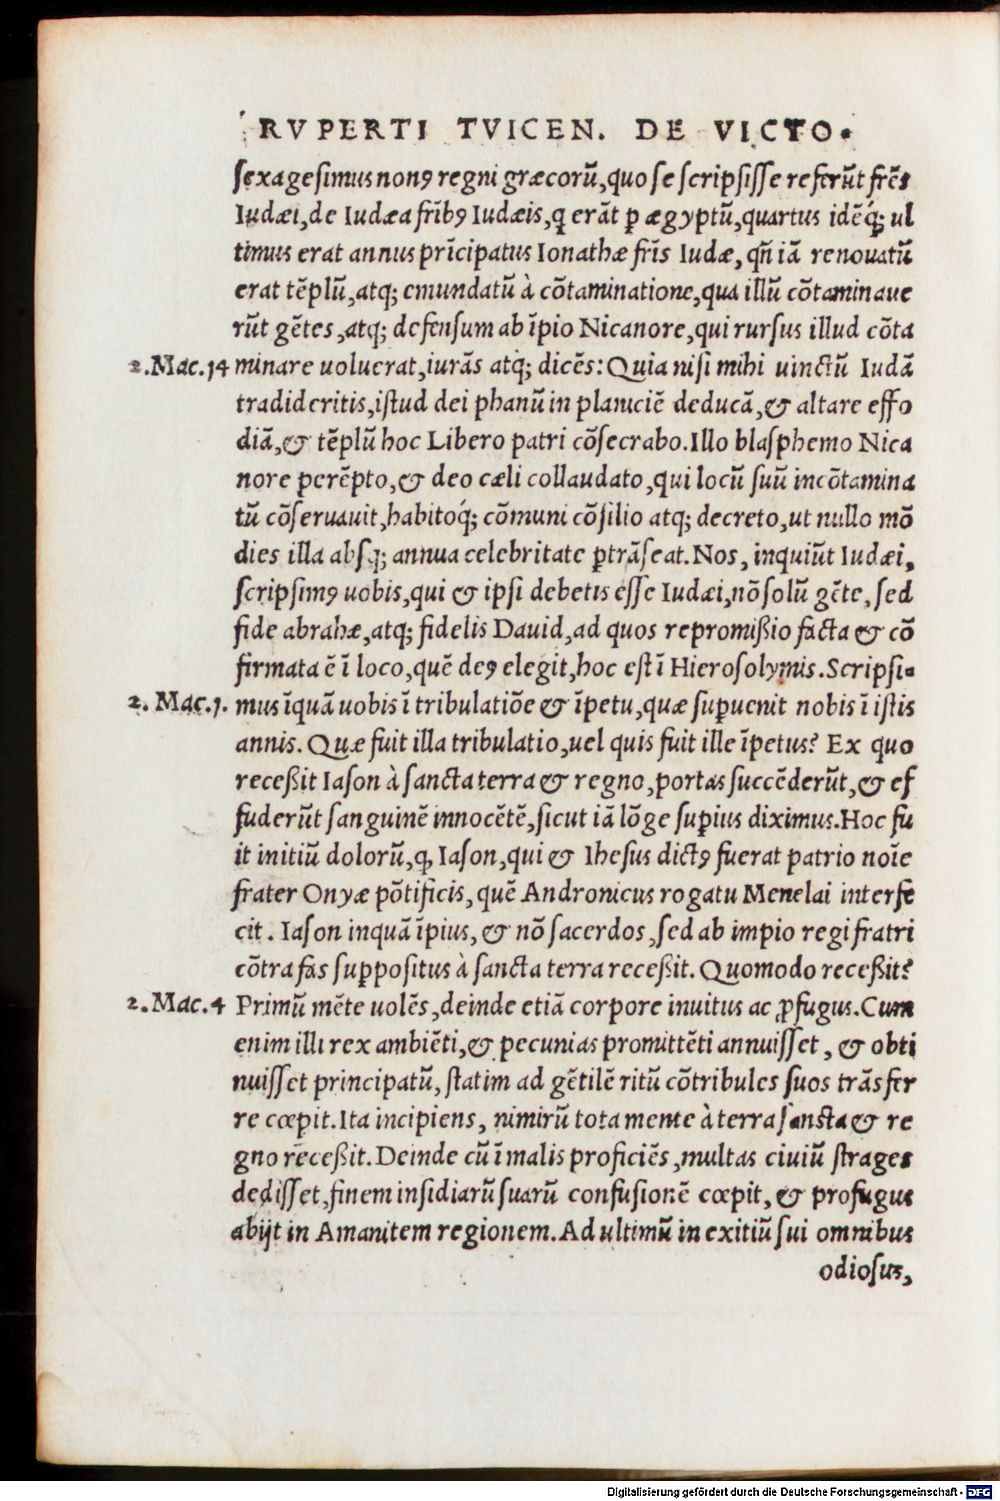 RVPERTI TVICEN. DE VICTO.
ſexageſimus nonꝰ regni græcorũ, quo ſe ſcripſiſſe referũt fr̃es
Iudæi, de Iudæa fr̃ibꝰ Iudæis, ꝗ erãt ꝑ ægyptũ, quartus idẽq́ꝫ ul
timus erat annus prĩcipatus Ionathæ fr̃is Iudæ, qñ iã renouatũ
erat tẽplũ, atqꝫ emundatũ à cõtaminatione, qua illũ cõtaminaue
rũt gẽtes, atqꝫ defenſum ab ĩpio Nicanore, qui rurſus illud cõta
2.Mac.14 minare uoluerat, iurãs atqꝫ dicẽs: Quia niſi mihi uinctũ Iudã
tradideritis, iſtud dei phanũ in planiciẽ deducã, & altare effo
diã, & tẽplũ hoc Libero patri cõſecrabo. Illo blaſphemo Nica
nore perẽpto, & deo cæli collaudato, qui locũ ſuũ incõtamina
tũ cõſeruauit, habitoq́ꝫ cõmuni cõſilio atqꝫ decreto, ut nullo mõ
dies illa abſqꝫ annua celebritate ꝑtrãſeat. Nos, inquiũt Iudæi,
ſcripſimꝰ uobis, qui & ipſi debetis eſſe Iudæi, nõ ſolũ gẽte, ſed
fide abrahæ, atqꝫ fidelis Dauid, ad quos repromiſſio facta & cõ
firmata ẽ ĩ loco, quẽ deꝰ elegit, hoc eſt ĩ Hieroſolymis. Scripſi-
2. Mac.1. mus ĩquã uobis ĩ tribulatiõe & ĩpetu, quæ ſuꝑuenit nobis ĩ iſtis
annis. Quæ fuit illa tribulatio, uel quis fuit ille ĩpetus? Ex quo
receßit Iaſon à ſancta terra & regno, portas ſuccẽderũt, & ef
fuderũt ſanguinẽ innocẽtẽ, ſicut iã lõge ſuꝑius diximus. Hoc fu
it initiũ dolorũ, ꝙ Iaſon, qui & Iheſus dictꝰ fuerat patrio noĩe
frater Onyæ põtificis, quẽ Andronicus rogatu Menelai interfe
cit. Iaſon inquã ĩpius, & nõ ſacerdos, ſed ab impio regi fratri
cõtra fas ſuppoſitus à ſancta terra receßit. Quomodo receßit?
2.Mac.4 Primũ mẽte uolẽs, deinde etiã corpore inuitus ac ꝓfugus. Cum
enim illi rex ambiẽti, & pecunias promittẽti annuiſſet, & obti
nuiſſet principatũ, ſtatim ad gẽtilẽ ritũ cõtribules ſuos trãsfer
re cœpit. Ita incipiens, nimirũ tota mente à terra ſancta & re
gno receßit. Deinde cũ ĩ malis proficiẽs, multas ciuiũ ſtrages
dediſſet, finem inſidiarũ ſuarũ confuſionẽ cœpit, & profugus
abijt in Amanitem regionem. Ad ultimũ in exitiũ ſui omnibus
odioſus,
Digitalisierung gefördert durch die Deutsche Forschungsgemeinschaft - DFG